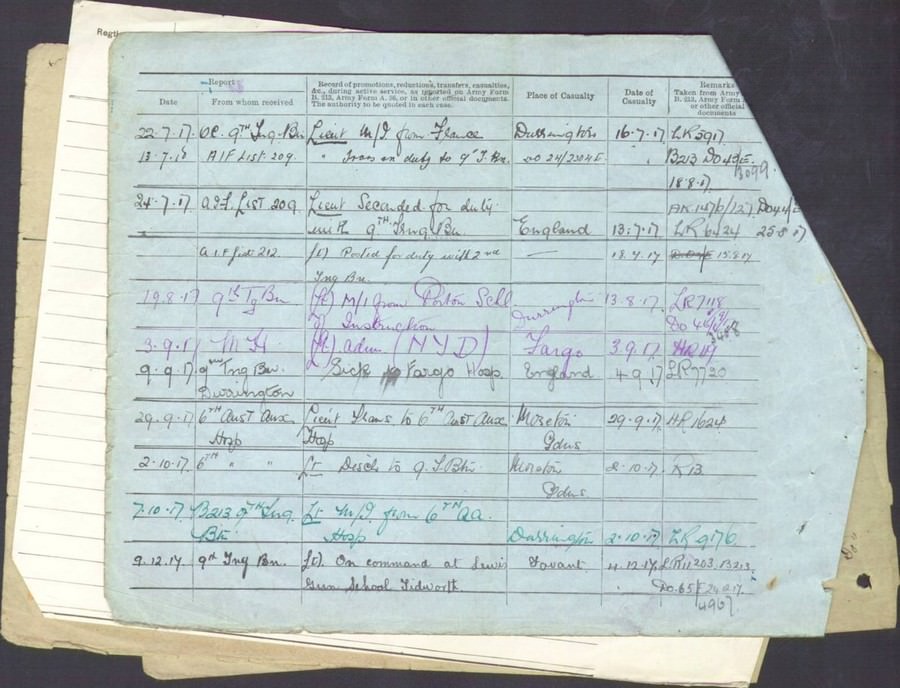 Report
Record of promotions, reductions, transfers, casualties,
&c., during active service, as reported on Army Form
B. 213, Army Form A. 36, or in other official documents.
The authority to be quoted in each case.
Date
From whom received
Place of Casualty
Date of
Casualty
Remarks
Taken from Army
B. 213, Army Form
or other official
documents
22.7.17. OC. 9TH Tng. Bn Lieut M/I from France Durrington 16.7.17 LR 5917
13.7.18 AIF List 209. " Trans on duty to 9th T. Bn. B213 DO 49/E
3099
18.8.17
24.7.17 A.I.F. List 209 Lieut Seconded for duty
with 9TH Trng Bn. England 13.7.17 LR 6424 25.8.17
A.I.F List 212. (Lt) Posted for duty with 2nd — 18.7.17 15.8.17
Tng Bn.
19.8.17 9th Tg Bn (Lt) M/I from Porton Schl Durrington 13.8.17 LR 7118
Instruction
3.9.17 (Lt) adm (NYD) Fargo 3.9.17
9.9.17 9th Tng Bn. Sick to Fargo Hosp. England 4.9.17 LR 7720
Durrington
29.9.17 6TH Aust Aux Lieut Trans to 6TH Aust Aux Moreton 29.9.17 HR 1624
Hosp Hosp Gdns
2.10.17 6TH " " Lt Disch to 9. T. Btn. Moreton 2.10.17 R13
Gdns
7.10.17 B213 9TH Tng. Lt M/I from 6TH AA.
Btn Hosp Durrington 2.10.17 LR 9176
9.12.17. 9th Tng Bn. (Lt) On command at Lewis Fovant. 4.12.17 LR 11203. B213.
Gun School Tidworth. DO.65
4967